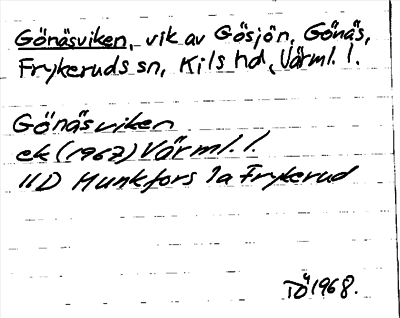 Gönäsviken, vik av Gösjön, Gönäs,
Frykeruds sn, Kils hd, Värml. l.
Gönäsviken
ek (1967) Värml. l.
11D Munkfors 1a Frykerud
TÖ 1968.